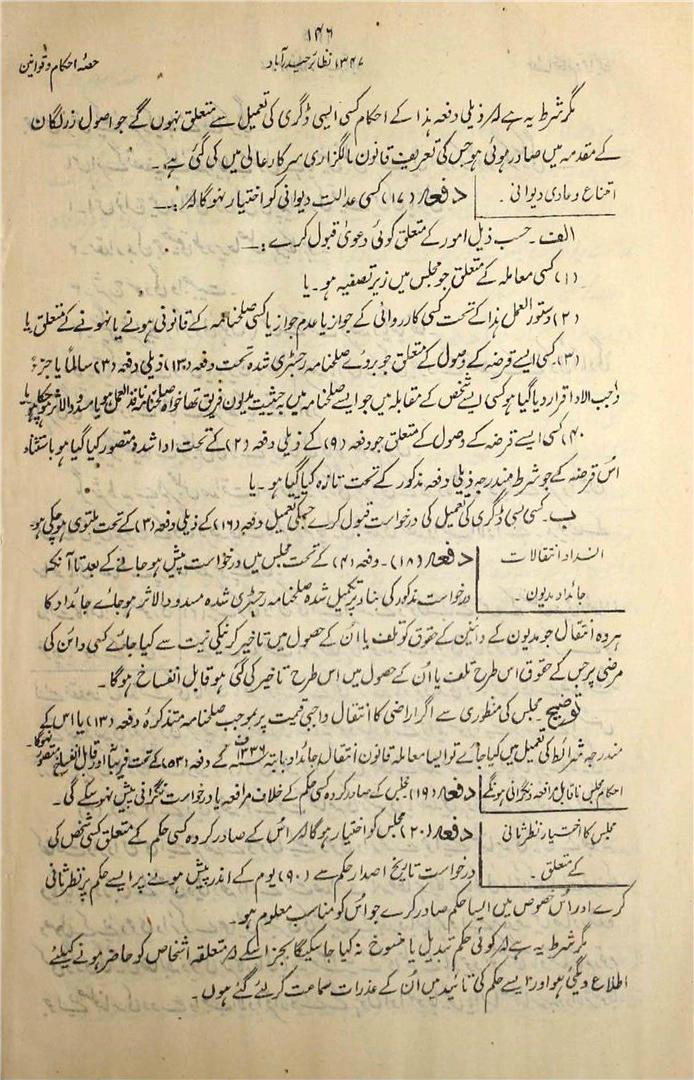 ۱۴۶
حصۂ احکام و قوانین
۱۳۴۷ نظائر حیدرآباد
مگر شرط یہ ہے کہ ذیلی دفعہ ہذا کے احکام کسی ایسی ڈگری کی تعمیل سے متعلق نہوں گے جو اصول زر لگان
کے مقدمہ میں صادر ہوئی ہو جس کی تعریف قانون مالگزاری سرکار عالی میں کی گئی ہے۔
امتناع دعاوی دیوانی۔
دفعہ (۱۷) کسی عدالت دیوانی کو اختیار نہوگا کہ:۔
الف۔ حسب ذیل امور کے متعلق کوئی دعویٰ قبول کرے:۔
(۱) کسی معاملہ کے متعلق جو مجلس میں زیر تصفیہ ہو۔ یا
(۲) دستور العمل ہذا کے تحت کسی کارروائی کے جواز یا عدم جواز یا کسی صلحنامہ کے قانونی ہونے یا نہونے کے متعلق یا
(۳) کسی ایسے قرضہ کے وصول کے متعلق جو بروے صلحنامہ رجسٹری شدہ تحت دفعہ (۱۳) ذیلی دفعہ (۳) سالماً یا جزءً
واجب الادا قرار دیا گیا ہو کسی ایسے شخص کے مقابلہ میں جو ایسے صلحنامہ میں بہ حیثیت مدیون فریق تھا خواہ صلحنامہ نافذ العمل ہو یا مسدود الاثر ہو چکا ہو یا
(۴) کسی ایسے قرضہ کے وصول کے متعلق جو دفعہ (۹) کے ذیلی دفعہ (۲) کے تحت ادا شدہ متصور کیا گیا ہو باستثناء
اس قرضہ کے جو شرط مندرجہ ذیلی دفعہ مذکور کے تحت تازہ کیا گیا ہو۔ یا
ب۔ کسی ایسی ڈگری کی تعمیل کی درخواست قبول کرے جسکی تعمیل دفعہ (۱۶) کے ذیلی دفعہ (۳) کے تحت ملتوی ہو چکی ہو۔
انسداد انتقالات
جائداد مدیون۔
دفعہ (۱۸)۔ دفعہ (۴) کے تحت مجلس میں درخواست پیش ہو جانے کے بعد تا آنکہ
درخواست مذکور کی بناء پر تکمیل شدہ صلحنامہ رجسٹری شدہ مسدود الاثر ہو جائے جائداد کا
ہر وہ انتقال جو مدیون کے دائنین کے حقوق کو تلف یا ان کے حصول میں تاخیر کرنیکی نیت سے کیا جائے کسی دائن کی
مرضی پر جس کے حقوق اس طرح تلف یا ان کے حصول میں اس طرح تاخیر کی گئی ہو قابل انفساخ ہوگا۔
توضیح۔ مجلس کی منظوری سے اگر اراضی کا انتقال واجبی قیمت پر بموجب صلحنامہ متذکرۂ دفعہ (۱۳) یا اس کے
مندرجہ شرائط کی تعمیل میں کیا جائے تو ایسا معاملہ قانون انتقال جائداد بابتہ ۱۳۳۶ف کے دفعہ (۵۳) کے تحت فریباً اور قابل انفساخ متصور نہوگا۔
احکام مجلس ناقابل مرافعہ و نگرانی ہونگے
دفعہ (۱۹) مجلس کے صادر کردہ کسی حکم کے خلاف مرافعہ یا درخواست نگرانی پیش نہو سکے گی۔
مجلس کا اختیار نظر ثانی
کے متعلق۔
دفعہ (۲۰) مجلس کو اختیار ہوگا کہ اس کے صادر کردہ کسی حکم کے متعلق کسی شخص کی
درخواست تاریخ اصدار حکم سے (۹۰) یوم کے اندر پیش ہونے پر ایسے حکم پر نظر ثانی
کرے اور اس خصوص میں ایسا حکم صادر کرے جو اس کو مناسب معلوم ہو۔
مگر شرط یہ ہے کہ کوئی حکم تبدیل یا منسوخ نہ کیا جا سکیگا بجز اسکے کہ متعلقہ اشخاص کو حاضر ہونے کیلئے
اطلاع دیگئی ہو اور ایسے حکم کی تائید میں ان کے عذرات سماعت کر لئے گئے ہوں۔